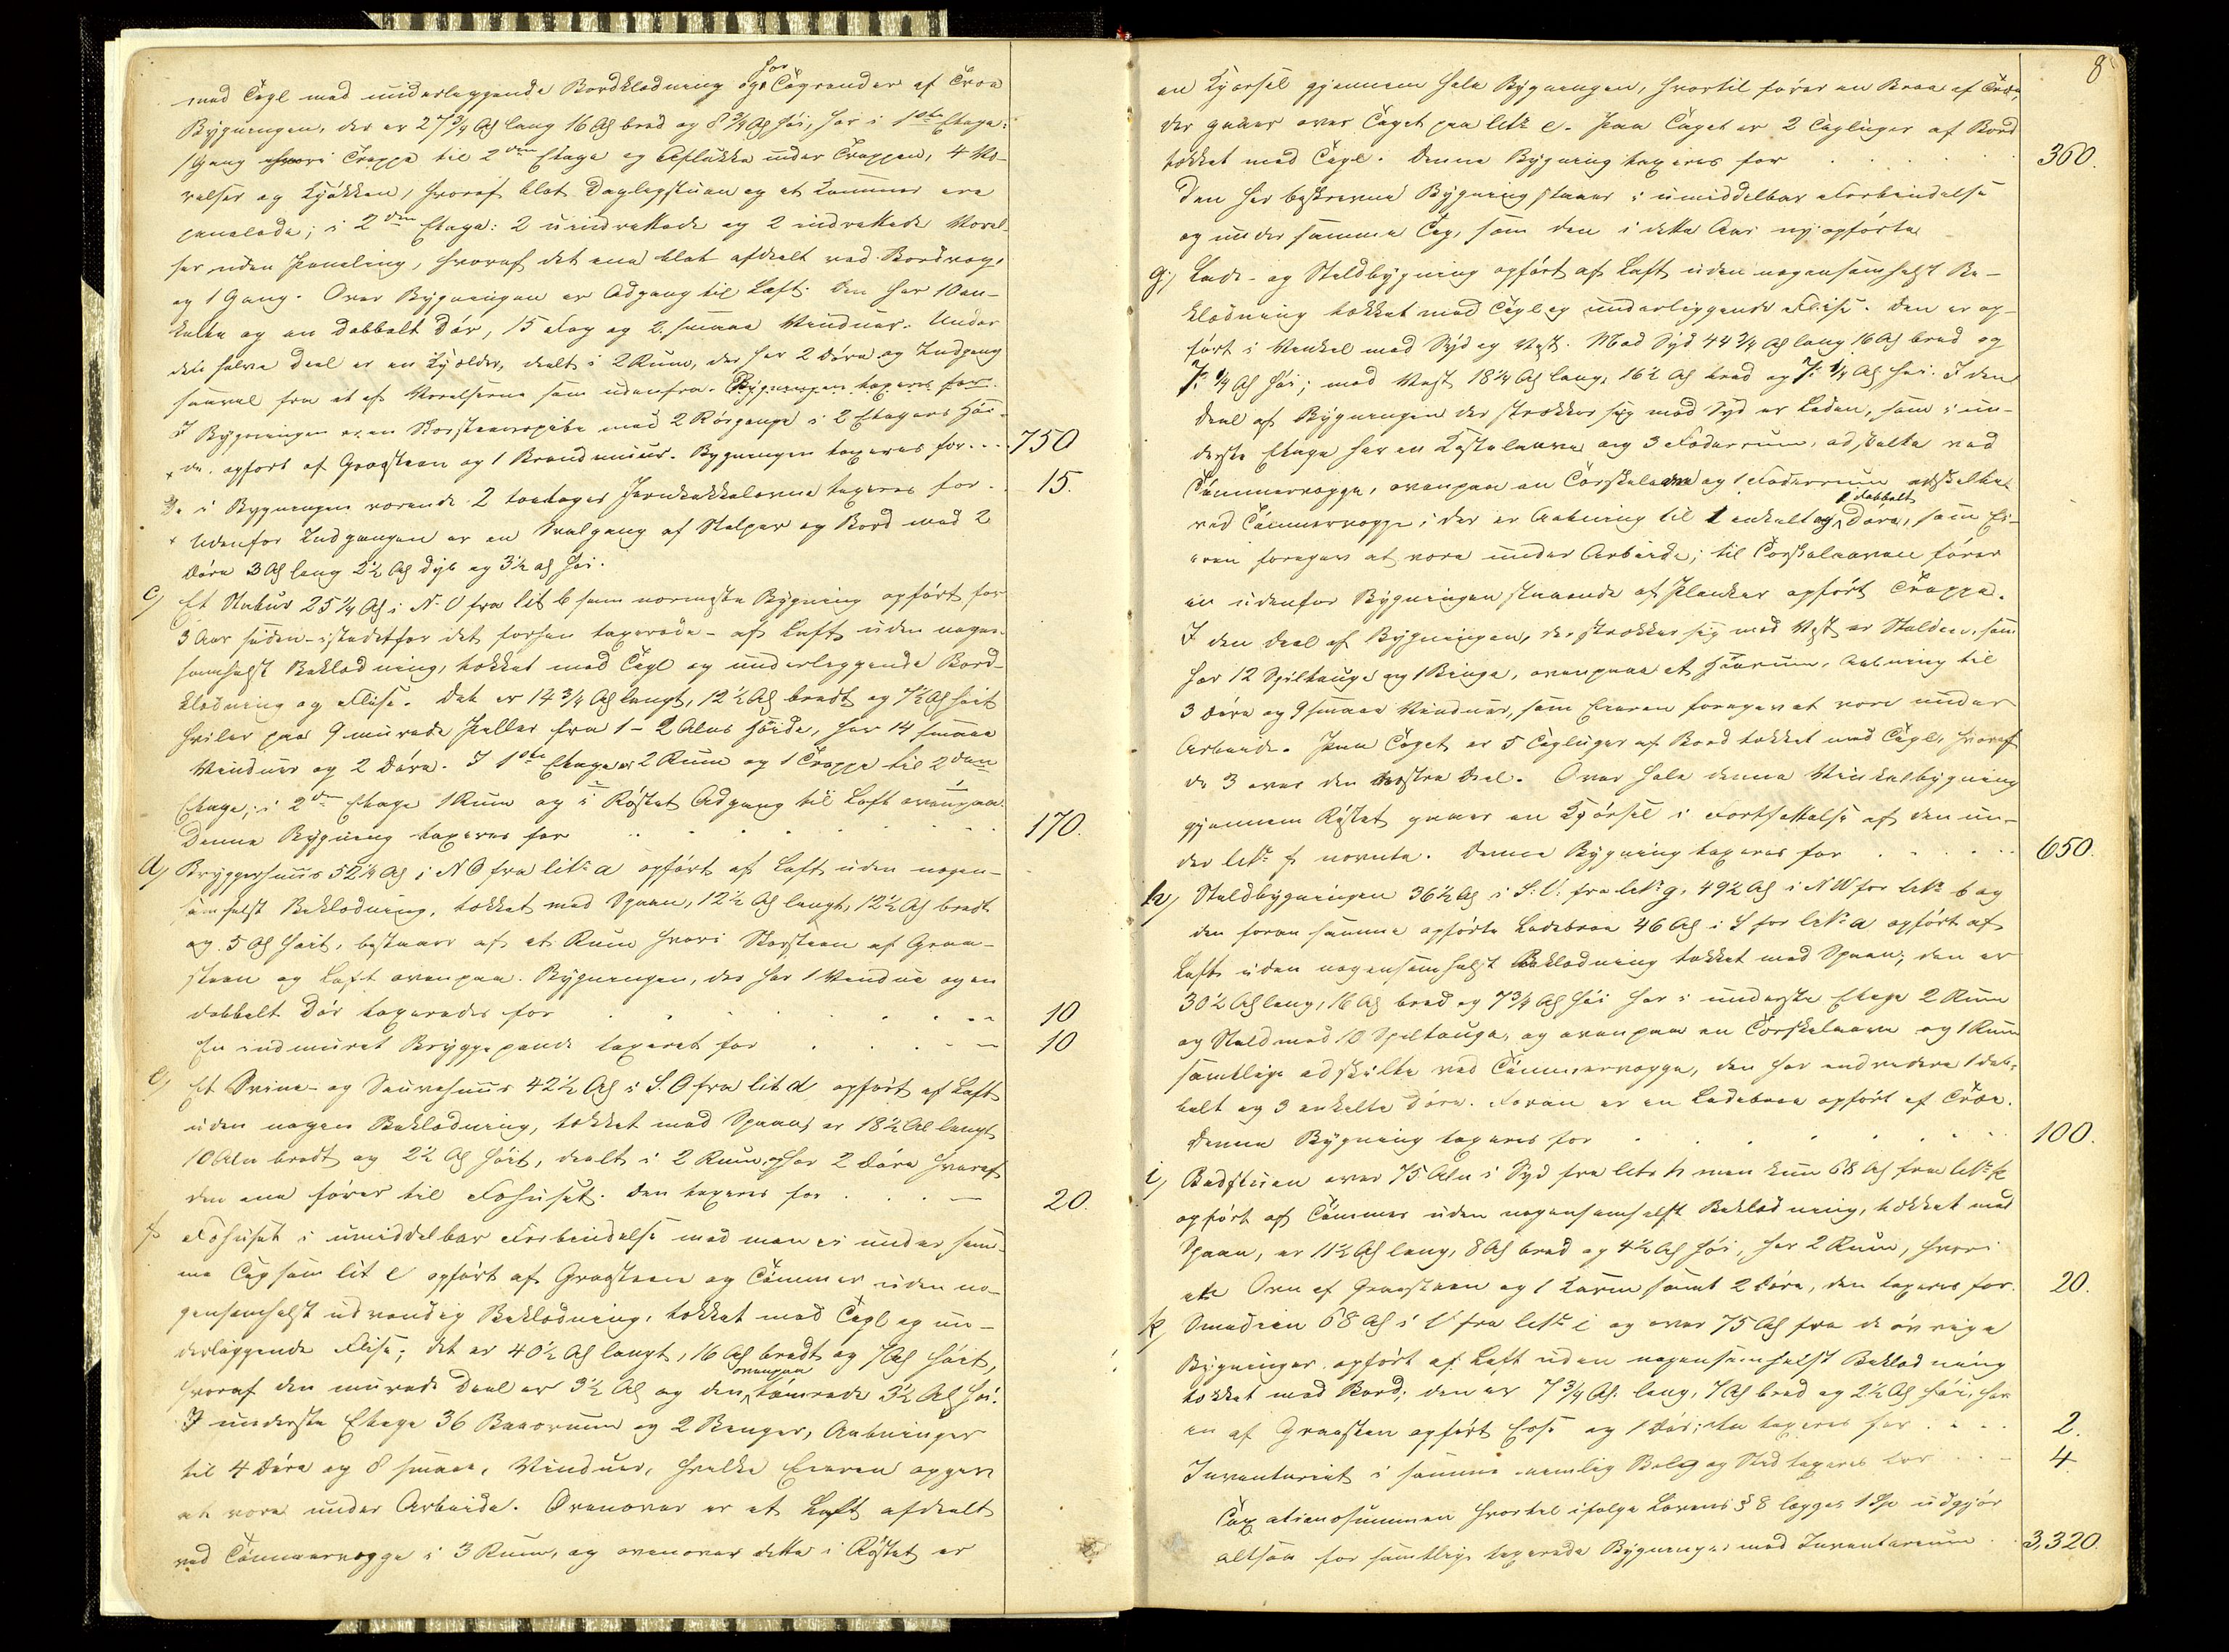 med Tegl med underliggende Bordklædning og har Tagrender af Træe
Bygningen, der er 27 3/4 Al lang 16 Al bred og 8 3/4 Al høi, har i 1ste Etage:
1 Gang hvori Trappe til 2den Etage og Aflukke under Trappen, 4 Væ-
relser og Kjøkken, hvoraf blot Dagligstuen og et Kammer ere
panelede; i 2den Etage: 2 uindrettede og 2 indrettede Værel-
ser uden Paneling, hvoraf det ene blot afdeelt ved Bordvæg,
og 1 Gang. Over Bygningen er Adgang til Loft. Den har 10 en-
kelte og en dobbelt Dør, 15 Fag og 2 smaae Vinduer. Under
den halve Deel er en Kjelder, deelt i 2 Rum, der har 2 Døre og Indgang
saavel fra et af Værelserne som udenfra. Bygningen taxeres for
I Bygningen er en Skorsteenspibe med 2 Rørgange i 2 Etagers Høi-
de, opført af Graasteen og 1 Brandmuur. Bygningen taxeres for . . . 750
De i Bygningen værende 2 toetages Jernkakkelovne taxeres for . 15.
Udenfor Indgangen er en Svalgang af Stolper og Bord med 2
Døre 3 Al lang 2 1/2 Al dyb og 3 1/2 Al høi.
c) Et Stabur 25 1/4 Al i N. O fra lit b som nærmeste Bygning opført for
3 Aar siden - istedetfor det forhen taxerede - af Laft uden nogen-
somhelst Beklædning, tækket med Tegl og underliggende Bord-
klædning og Flise. Det er 14 3/4 Al langt, 12 1/2 Al bredt og 7 1/2 Al høit
hviler paa 9 murede Piller fra 1 - 2 Alens Høide, har 14 smaae
Vinduer og 2 Døre. I 1ste Etage er 2 Rum og 1 Trappe til 2den
Etage; i 2den Etage 1 Rum og i Røstet Adgang til Loft ovenpaa.
Denne Bygning taxeres for . . . 170.
d) Bryggerhuus 52 1/4 Al i N O fra litr a opført af Laft uden nogen-
somhelst Beklædning, tækket med Spaan, 12 1/2 Al langt, 12 1/2 Al bredt
og 5 Al høit, bestaaer af et Rum hvori Skorsteen af Graa-
steen og Loft ovenpaa. Bygningen, der har 1 Vindue og en
dobbelt Dør taxeredes for . . . 10
En indmuret Bryggepande taxeret for . . . 10
e) Et Svine- og Sauehuus 42 1/2 Al i S. O fra lit d opført af Laft
uden nogen Beklædning, tækket med Spaan, er 18 1/2 Al langt
10 Alen bredt og 2 1/2 Al høit, deelt i 2 Rum, og har 2 Døre hvoraf
den ene fører til Fæhuset. Den taxeres for . . . 20.
f Fæhuset i umiddelbar Forbindelse med men ei under sam-
me Tag som lit e opført af Graasteen og Tømmer uden no-
gensomhelst udvendig Beklædning, tækket med Tegl og un-
derliggende Flise; det er 40 1/2 Al langt, 16 Al bredt og 7 Al høit,
hvoraf den murede Deel er 3 1/2 Al og den ovenpaa tømrede 3 1/2 Al høi.
I underste Etage 36 Baaserum og 2 Benger, Aabninger
til 4 Døre og 8 smaae, Vinduer, hvilke Eieren opgav
at være under Arbeide. Ovenover er et Loft afdeelt
ved Tømmervægge i 3 Rum, og ovenover dette i Røstet er
8
en Kjørsel gjennem hele Bygningen, hvortil fører en Broe af Træe,
der gaaer over Taget paa litr e. Paa Taget er 2 Tagluger af Bord
tækket med Tegl. Denne Bygning taxeres for . . . 360.
Den her beskrevne Bygning staaer i umiddelbar Forbindelse
og under samme Tag, som den i dette Aar ny opførte
g) Lade- og Staldbygning opført af Laft uden nogensomhelst Be-
klædning tækket med Tegl og underliggende Flise. Den er op-
ført i Vinkel mod Syd og Vest. Mod Syd 44 3/4 Al lang 16 Al bred og
7 1/4 Al høi; mod Vest 18 1/4 Al lang, 16 1/2 Al bred og 7 1/4 Al høi. I den
Deel af Bygningen der strækker sig mod Syd er Laden, som i un-
derste Etage har en og 3 Foderrum, adskilte ved
Tømmervægge, ovenpaa en Tørskelaave og 1 Foderrum adskilte
ved Tømmervægge; der er Aabning til 1 enkelt og 1 dobbelt Døre, som Ei-
eren foregav at være under Arbeide; til Tørskelaaven fører
en udenfor Bygningen staaende af Planker opført Trappe.
I den Deel af Bygningen, der strækker sig mod Vest er Stalden, som
har 12 Spiltauge og 1 Binge, ovenpaa et Høerum, Aabning til
3 Døre og 9 smaae Vinduer, som Eieren foregav at være under
Arbeide. Paa Taget er 5 Tagluger af Bord tækket med Tegl, hvoraf
de 3 over den vestre Deel. Over hele denne Vinkelbygning
gjennem Røstet gaaer en Kjørsel i Fortsættelse af den un-
der litr f nævnte. Denne Bygning taxeres for . . . 650.
h) Staldbygningen 36 1/2 Al i S. V. fra litr g, 49 1/2 Al i N W for litr b og
den foran samme opførte Ladebroe 46 Al i S for litr a opført af
Laft uden nogensomhelst Beklædning tækket med Spaan; den er
30 1/2 Al lang, 16 Al bred og 7 3/4 Al høi har i underste Etage 2 Rum
og Stald med 10 Spiltauge, og ovenpaa en Tørskelaave og 1 Rum
samtlige adskilte ved Tømmervægge, den har endvidere 1 dob-
belt og 3 enkelte Døre. Foran er en Ladebroe opført af Træe.
Denne Bygning taxeres for . . . 100.
i) Badstuen over 75 Alen i Syd fra litr h men kun 68 Al fra litr k
opført af Tømmer uden nogensomhelst Beklædning, tækket med
Spaan, er 11 1/2 Al lang, 8 Al bred og 4 1/2 Al høi, har 2 Rum, hvori
en Ovn af Graasteen og 1 samt 2 Døre, den taxeres for. 20.
k) Smedien 68 Al i V fra litr i og over 75 Al fra de øvrige
Bygninger opført af Laft uden nogensomhelst Beklædning
tækket med Bord; den er 7 3/4 Al. lang, 7 Al bred og 2 1/2 Al høi, har
en af Graasten opført Esse og 1 Dør; den taxeres for . . . 2.
Inventariet i samme nemlig Belg og Sted taxeres for . . . 4
Taxationssummen hvortil ifølge Lovens § 8 lægges 1 Sp udgjør
altsaa for samtlige taxerede Bygninger med Inventarium . . 3,320.